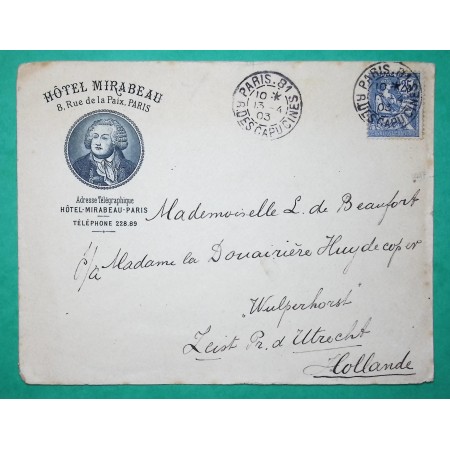 HÔTEL MIRABEAU
8, Rue de la Paix, PARIS
Adresse Télégraphique
HÔTEL-MIRABEAU-PARIS
TÉLÉPHONE 228.89
PARIS. 81
10 *
13 - 4
03
R. DES CAPUCINES
PARIS. 81
03
R. DES CAPUCINES
Mademoiselle L. de Beaufort
c/a Madame la Douairière Huydecoper
"Wulperhorst"
Zeist Pr. d'Utrecht
Hollande